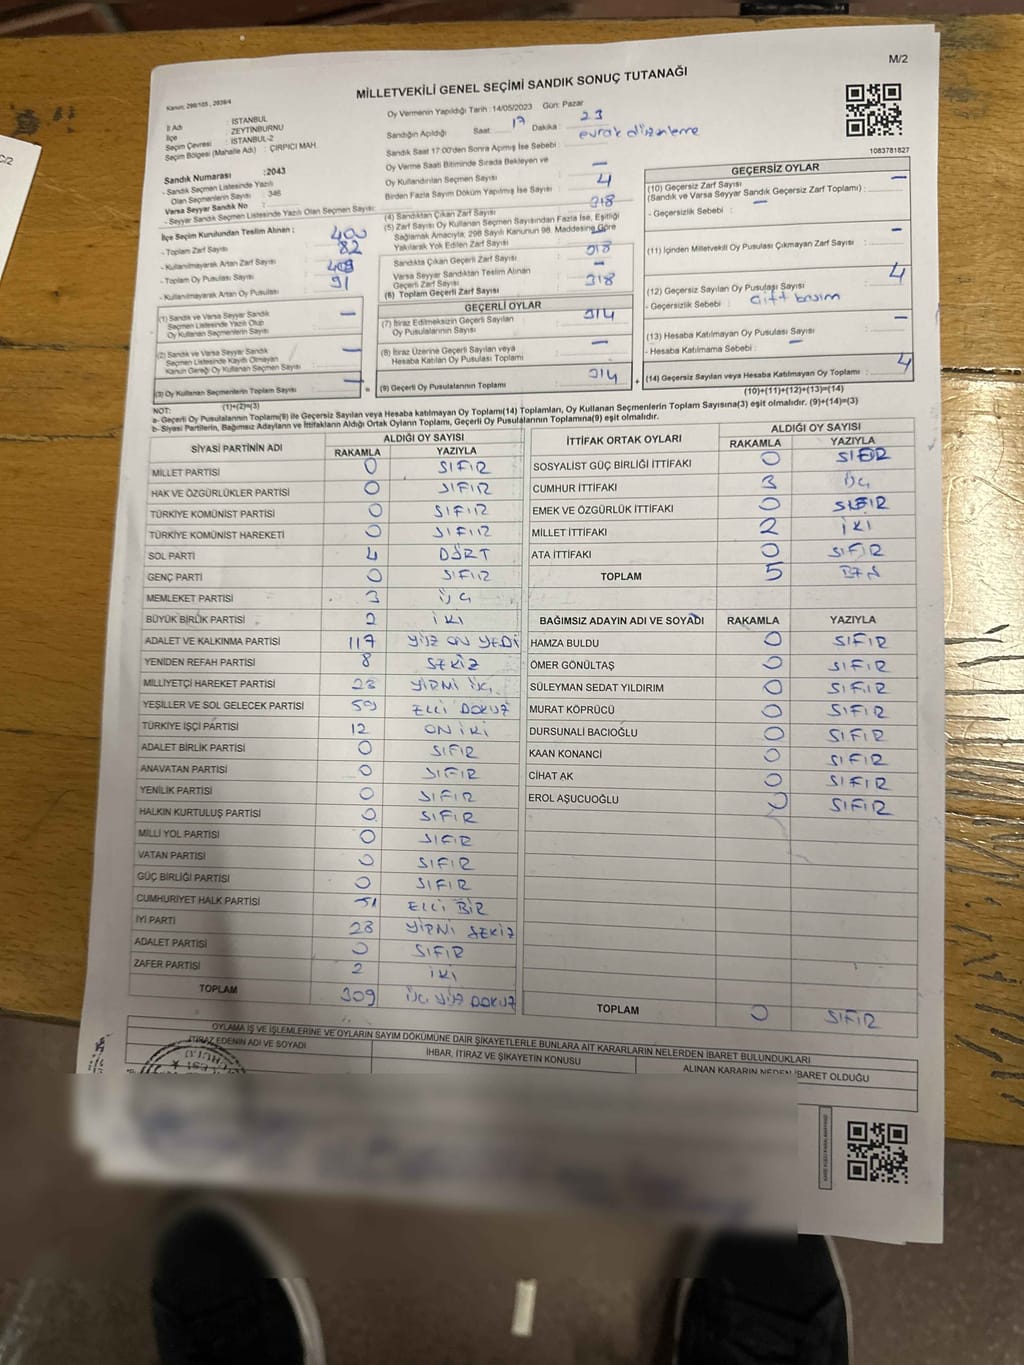 M/2
MİLLETVEKİLİ GENEL SEÇİMİ SANDIK SONUÇ TUTANAĞI
Kanun: 298/105, 2839/4
İl Adı : İSTANBUL
İlçe : ZEYTİNBURNU
Seçim Çevresi : İSTANBUL-2
Seçim Bölgesi (Mahalle Adı) : ÇIRPICI MAH.
Sandık Numarası :2043
- Sandık Seçmen Listesinde Yazılı
Olan Seçmenlerin Sayısı : 346
Varsa Seyyar Sandık No :
- Seyyar Sandık Seçmen Listesinde Yazılı Olan Seçmen Sayısı:
İlçe Seçim Kurulundan Teslim Alınan ;
- Toplam Zarf Sayısı : 400
- Kullanılmayarak Artan Zarf Sayısı : 82
- Toplam Oy Pusulası Sayısı : 409
- Kullanılmayarak Artan Oy Pusulası : 91
(1) Sandık ve Varsa Seyyar Sandık
Seçmen Listesinde Yazılı Olup
Oy Kullanan Seçmenlerin Sayısı : —
(2) Sandık ve Varsa Seyyar Sandık
Seçmen Listesinde Kayıtlı Olmayan
Kanun Gereği Oy Kullanan Seçmen Sayısı : —
(3) Oy Kullanan Seçmenlerin Toplam Sayısı : —
(1)+(2)=(3)
Oy Vermenin Yapıldığı Tarih :14/05/2023 Gün: Pazar
Sandığın Açıldığı Saat: 17 Dakika : 23
Sandık Saat 17:00'den Sonra Açılmış İse Sebebi : evrak düzenleme
Oy Verme Saati Bitiminde Sırada Bekleyen ve
Oy Kullandırılan Seçmen Sayısı : —
Birden Fazla Sayım Döküm Yapılmış İse Sayısı : 4
(4) Sandıktan Çıkan Zarf Sayısı : 318
(5) Zarf Sayısı Oy Kullanan Seçmen Sayısından Fazla İse, Eşitliği
Sağlamak Amacıyla; 298 Sayılı Kanunun 98. Maddesine Göre
Yakılarak Yok Edilen Zarf Sayısı : —
Sandıkta Çıkan Geçerli Zarf Sayısı : 318
Varsa Seyyar Sandıktan Teslim Alınan
Geçerli Zarf Sayısı : —
(6) Toplam Geçerli Zarf Sayısı : 318
GEÇERLİ OYLAR
(7) İtiraz Edilmeksizin Geçerli Sayılan
Oy Pusulalarının Sayısı : 314
(8) İtiraz Üzerine Geçerli Sayılan veya
Hesaba Katılan Oy Pusulası Toplamı : —
= (9) Geçerli Oy Pusulalarının Toplamı : 314
1083781827
GEÇERSİZ OYLAR
(10) Geçersiz Zarf Sayısı
(Sandık ve Varsa Seyyar Sandık Geçersiz Zarf Toplamı) : —
- Geçersizlik Sebebi : —
(11) İçinden Milletvekili Oy Pusulası Çıkmayan Zarf Sayısı : —
(12) Geçersiz Sayılan Oy Pusulası Sayısı : 4
- Geçersizlik Sebebi : Çift basım
(13) Hesaba Katılmayan Oy Pusulası Sayısı : —
- Hesaba Katılmama Sebebi : —
+ (14) Geçersiz Sayılan veya Hesaba Katılmayan Oy Toplamı : 4
(10)+(11)+(12)+(13)=(14)
NOT:
a- Geçerli Oy Pusulalarının Toplamı(9) ile Geçersiz Sayılan veya Hesaba katılmayan Oy Toplamı(14) Toplamları, Oy Kullanan Seçmenlerin Toplam Sayısına(3) eşit olmalıdır. (9)+(14)=(3)
b- Siyasi Partilerin, Bağımsız Adayların ve İttifakların Aldığı Ortak Oyların Toplamı, Geçerli Oy Pusulalarının Toplamına(9) eşit olmalıdır.
SİYASİ PARTİNİN ADI ALDIĞI OY SAYISI
RAKAMLA YAZIYLA
MİLLET PARTİSİ 0 SIFIR
HAK VE ÖZGÜRLÜKLER PARTİSİ 0 SIFIR
TÜRKİYE KOMÜNİST PARTİSİ 0 SIFIR
TÜRKİYE KOMÜNİST HAREKETİ 0 SIFIR
SOL PARTİ 4 DÖRT
GENÇ PARTİ 0 SIFIR
MEMLEKET PARTİSİ 3 ÜÇ
BÜYÜK BİRLİK PARTİSİ 2 İKİ
ADALET VE KALKINMA PARTİSİ 117 YÜZ ON YEDİ
YENİDEN REFAH PARTİSİ 8 SEKİZ
MİLLİYETÇİ HAREKET PARTİSİ 23 YİRMİ ÜÇ
YEŞİLLER VE SOL GELECEK PARTİSİ 59 ELLİ DOKUZ
TÜRKİYE İŞÇİ PARTİSİ 12 ON İKİ
ADALET BİRLİK PARTİSİ 0 SIFIR
ANAVATAN PARTİSİ 0 SIFIR
YENİLİK PARTİSİ 0 SIFIR
HALKIN KURTULUŞ PARTİSİ 0 SIFIR
MİLLİ YOL PARTİSİ 0 SIFIR
VATAN PARTİSİ 0 SIFIR
GÜÇ BİRLİĞİ PARTİSİ 0 SIFIR
CUMHURİYET HALK PARTİSİ 51 ELLİ BİR
İYİ PARTİ 28 YİRMİ SEKİZ
ADALET PARTİSİ 0 SIFIR
ZAFER PARTİSİ 2 İKİ
TOPLAM 309 ÜÇ YÜZ DOKUZ
İTTİFAK ORTAK OYLARI ALDIĞI OY SAYISI
RAKAMLA YAZIYLA
SOSYALİST GÜÇ BİRLİĞİ İTTİFAKI 0 SIFIR
CUMHUR İTTİFAKI 3 ÜÇ
EMEK VE ÖZGÜRLÜK İTTİFAKI 0 SIFIR
MİLLET İTTİFAKI 2 İKİ
ATA İTTİFAKI 0 SIFIR
TOPLAM 5 BEŞ
BAĞIMSIZ ADAYIN ADI VE SOYADI RAKAMLA YAZIYLA
HAMZA BULDU 0 SIFIR
ÖMER GÖNÜLTAŞ 0 SIFIR
SÜLEYMAN SEDAT YILDIRIM 0 SIFIR
MURAT KÖPRÜCÜ 0 SIFIR
DURSUNALİ BACIOĞLU 0 SIFIR
KAAN KONANCİ 0 SIFIR
CİHAT AK 0 SIFIR
EROL AŞUCUOĞLU 0 SIFIR
TOPLAM 0 SIFIR
OYLAMA İŞ VE İŞLEMLERİNE VE OYLARIN SAYIM DÖKÜMÜNE DAİR ŞİKAYETLERLE BUNLARA AİT KARARLARIN NELERDEN İBARET BULUNDUKLARI
İTİRAZ EDENİN ADI VE SOYADI İHBAR, İTİRAZ VE ŞİKAYETİN KONUSU ALINAN KARARIN NEDEN İBARET OLDUĞU